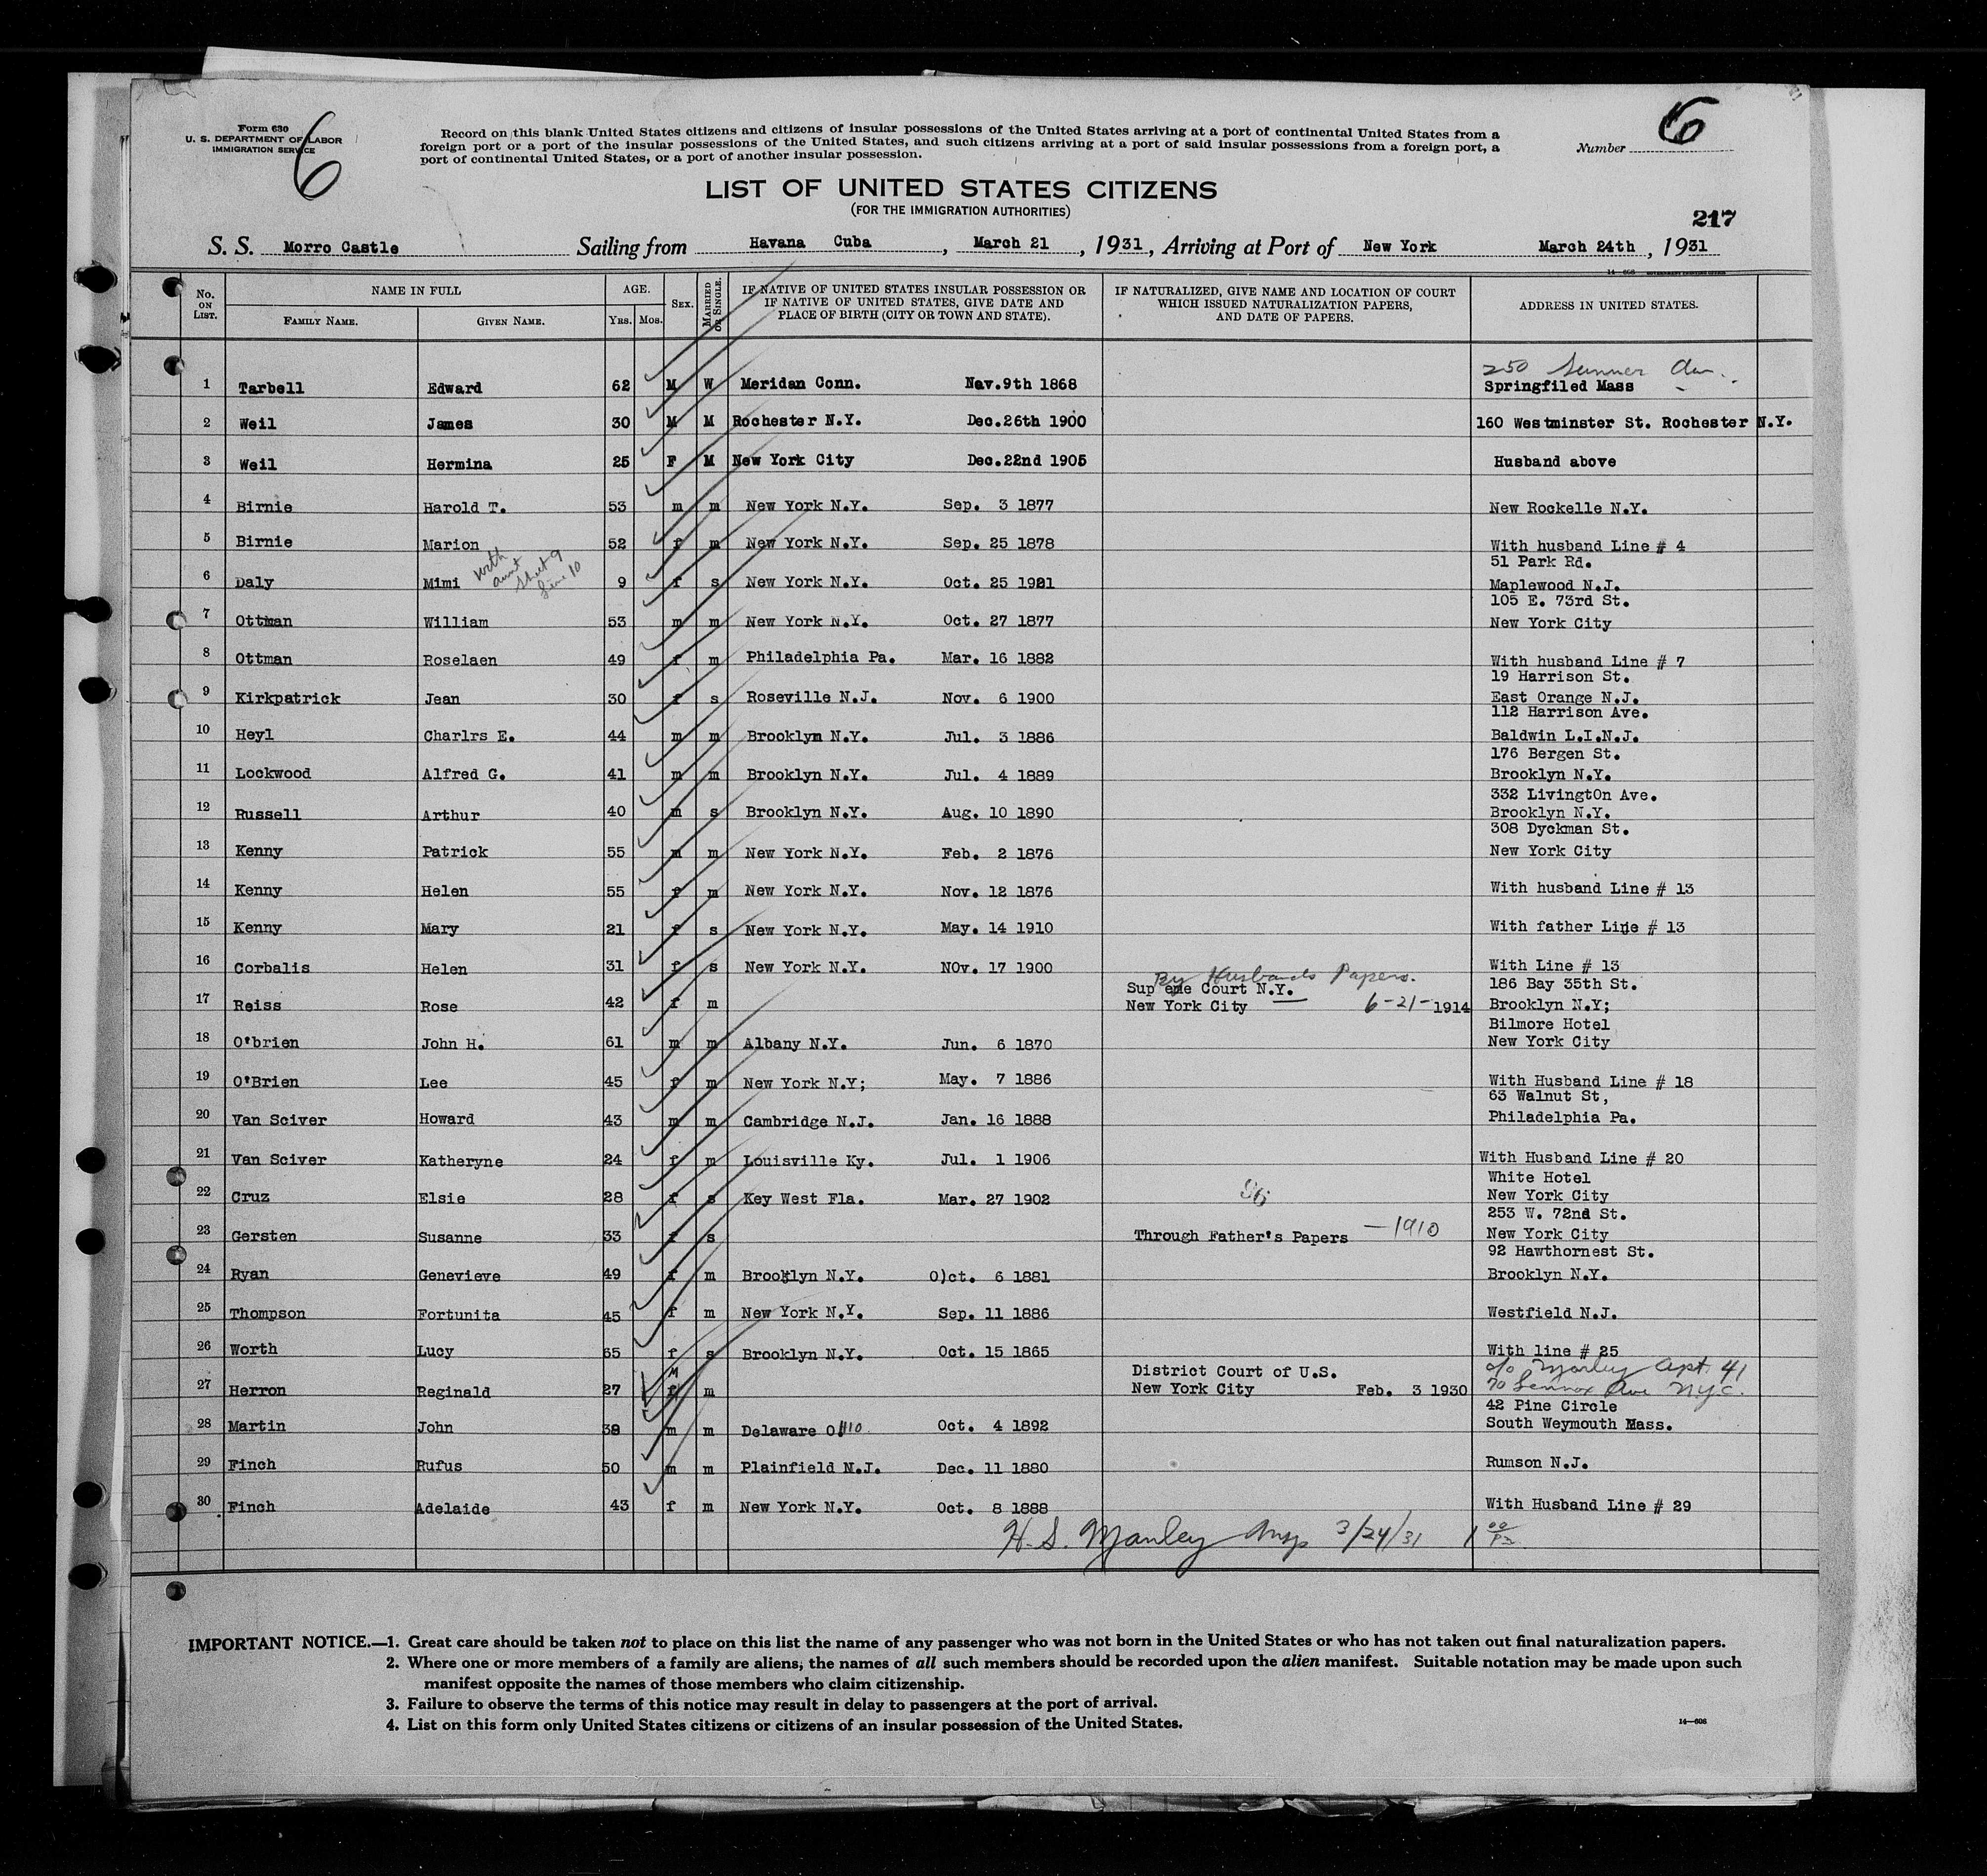 Form 630
U. S. DEPARTMENT OF LABOR
IMMIGRATION SERVICE
6
Record on this blank United States citizens and citizens of insular possessions of the United States arriving at a port of continental United States from a
foreign port or a port of the insular possessions of the United States, and such citizens arriving at a port of said insular possessions from a foreign port, a
port of continental United States, or a port of another insular possession.
Number 6
LIST OF UNITED STATES CITIZENS
(FOR THE IMMIGRATION AUTHORITIES)
217
S. S. Morro Castle Sailing from Havana Cuba, March 21, 1931, Arriving at Port of New York March 24th, 1931
14-608 GOVERNMENT PRINTING OFFICE
No. ON LIST. NAME IN FULL FAMILY NAME. GIVEN NAME. AGE. YRS. MOS. SEX. MARRIED OR SINGLE. IF NATIVE OF UNITED STATES INSULAR POSSESSION OR IF NATIVE OF UNITED STATES, GIVE DATE AND PLACE OF BIRTH (CITY OR TOWN AND STATE). IF NATURALIZED, GIVE NAME AND LOCATION OF COURT WHICH ISSUED NATURALIZATION PAPERS, AND DATE OF PAPERS. ADDRESS IN UNITED STATES.
250 Sumner Av.
1 Tarbell Edward 62 M W Meridan Conn. Nev.9th 1868 Springfiled Mass
2 Weil James 30 M M Rochester N.Y. Dec.26th 1900 160 Westminster St. Rochester N.Y.
3 Weil Hermina 25 F M New York City Dec.22nd 1905 Husband above
4 Birnie Harold T. 53 m m New York N.Y. Sep. 3 1877 New Rockelle N.Y.
5 Birnie Marion 52 f m New York N.Y. Sep. 25 1878 With husband Line # 4
51 Park Rd.
6 Daly Mimi with aunt sheet 9 line 10 9 f s New York N.Y. Oct. 25 1921 Maplewood N.J.
105 E. 73rd St.
7 Ottman William 53 m m New York N.Y. Oct. 27 1877 New York City
8 Ottman Roselaen 49 f m Philadelphia Pa. Mar. 16 1882 With husband Line # 7
19 Harrison St.
9 Kirkpatrick Jean 30 f s Roseville N.J. Nov. 6 1900 East Orange N.J.
112 Harrison Ave.
10 Heyl Charlrs E. 44 m m Brooklyn N.Y. Jul. 3 1886 Baldwin L.I.N.J.
176 Bergen St.
11 Lockwood Alfred G. 41 m m Brooklyn N.Y. Jul. 4 1889 Brooklyn N.Y.
332 LivingtOn Ave.
12 Russell Arthur 40 m s Brooklyn N.Y. Aug. 10 1890 Brooklyn N.Y.
308 Dyckman St.
13 Kenny Patrick 55 m m New York N.Y. Feb. 2 1876 New York City
14 Kenny Helen 55 f m New York N.Y. Nov. 12 1876 With husband Line # 13
15 Kenny Mary 21 f s New York N.Y. May. 14 1910 With father Line # 13
16 Corbalis Helen 31 f s New York N.Y. NOv. 17 1900 With Line # 13
By Husbands Papers.
Supeme Court N.Y. 186 Bay 35th St.
17 Reiss Rose 42 f m New York City 6-21-1914 Brooklyn N.Y;
Bilmore Hotel
18 O'brien John H. 61 m m Albany N.Y. Jun. 6 1870 New York City
19 O'Brien Lee 45 f m New York N.Y; May. 7 1886 With Husband Line # 18
63 Walnut St,
20 Van Sciver Howard 43 m m Cambridge N.J. Jan. 16 1888 Philadelphia Pa.
21 Van Sciver Katheryne 24 f m Louisville Ky. Jul. 1 1906 With Husband Line # 20
White Hotel
22 Cruz Elsie 28 f s Key West Fla. Mar. 27 1902 New York City
253 W. 72nd St.
23 Gersten Susanne 33 f s Through Father's Papers —1910 New York City
92 Hawthornest St.
24 Ryan Genevieve 49 f m Brooklyn N.Y. O)ct. 6 1881 Brooklyn N.Y.
25 Thompson Fortunita 45 f m New York N.Y. Sep. 11 1886 Westfield N.J.
26 Worth Lucy 65 f s Brooklyn N.Y. Oct. 15 1865 With line # 25
District Court of U.S. c/o Manley Apt. 41
27 Herron Reginald 27 M m New York City Feb. 3 1930 70 Lennox Ave N.Y.C.
42 Pine Circle
28 Martin John 38 m m Delaware OHIO Oct. 4 1892 South Weymouth Mass.
29 Finch Rufus 50 m m Plainfield N.J. Dec. 11 1880 Rumson N.J.
30 Finch Adelaide 43 f m New York N.Y. Oct. 8 1888 With Husband Line # 29
H. S. Manley Insp 3/24/31
IMPORTANT NOTICE.—1. Great care should be taken not to place on this list the name of any passenger who was not born in the United States or who has not taken out final naturalization papers.
2. Where one or more members of a family are aliens, the names of all such members should be recorded upon the alien manifest. Suitable notation may be made upon such
manifest opposite the names of those members who claim citizenship.
3. Failure to observe the terms of this notice may result in delay to passengers at the port of arrival.
4. List on this form only United States citizens or citizens of an insular possession of the United States.
14-608